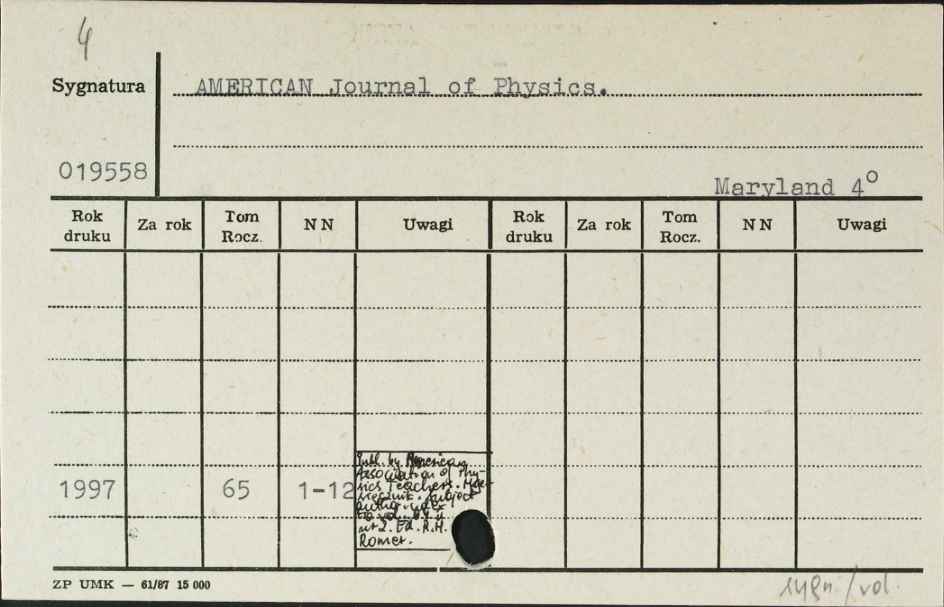 4
Sygnatura
AMERICAN Journal of Physics.
019558
Maryland 4°
Rok druku Za rok Tom Rocz. N N Uwagi Rok druku Za rok Tom Rocz. N N Uwagi
1997 65 1-12
Publ. by American
Association of Phy-
sics Teachers.
subject
index
nr 2. Ed. R.H.
Romer.
ZP UMK — 61/87 15 000
sygn./vol.